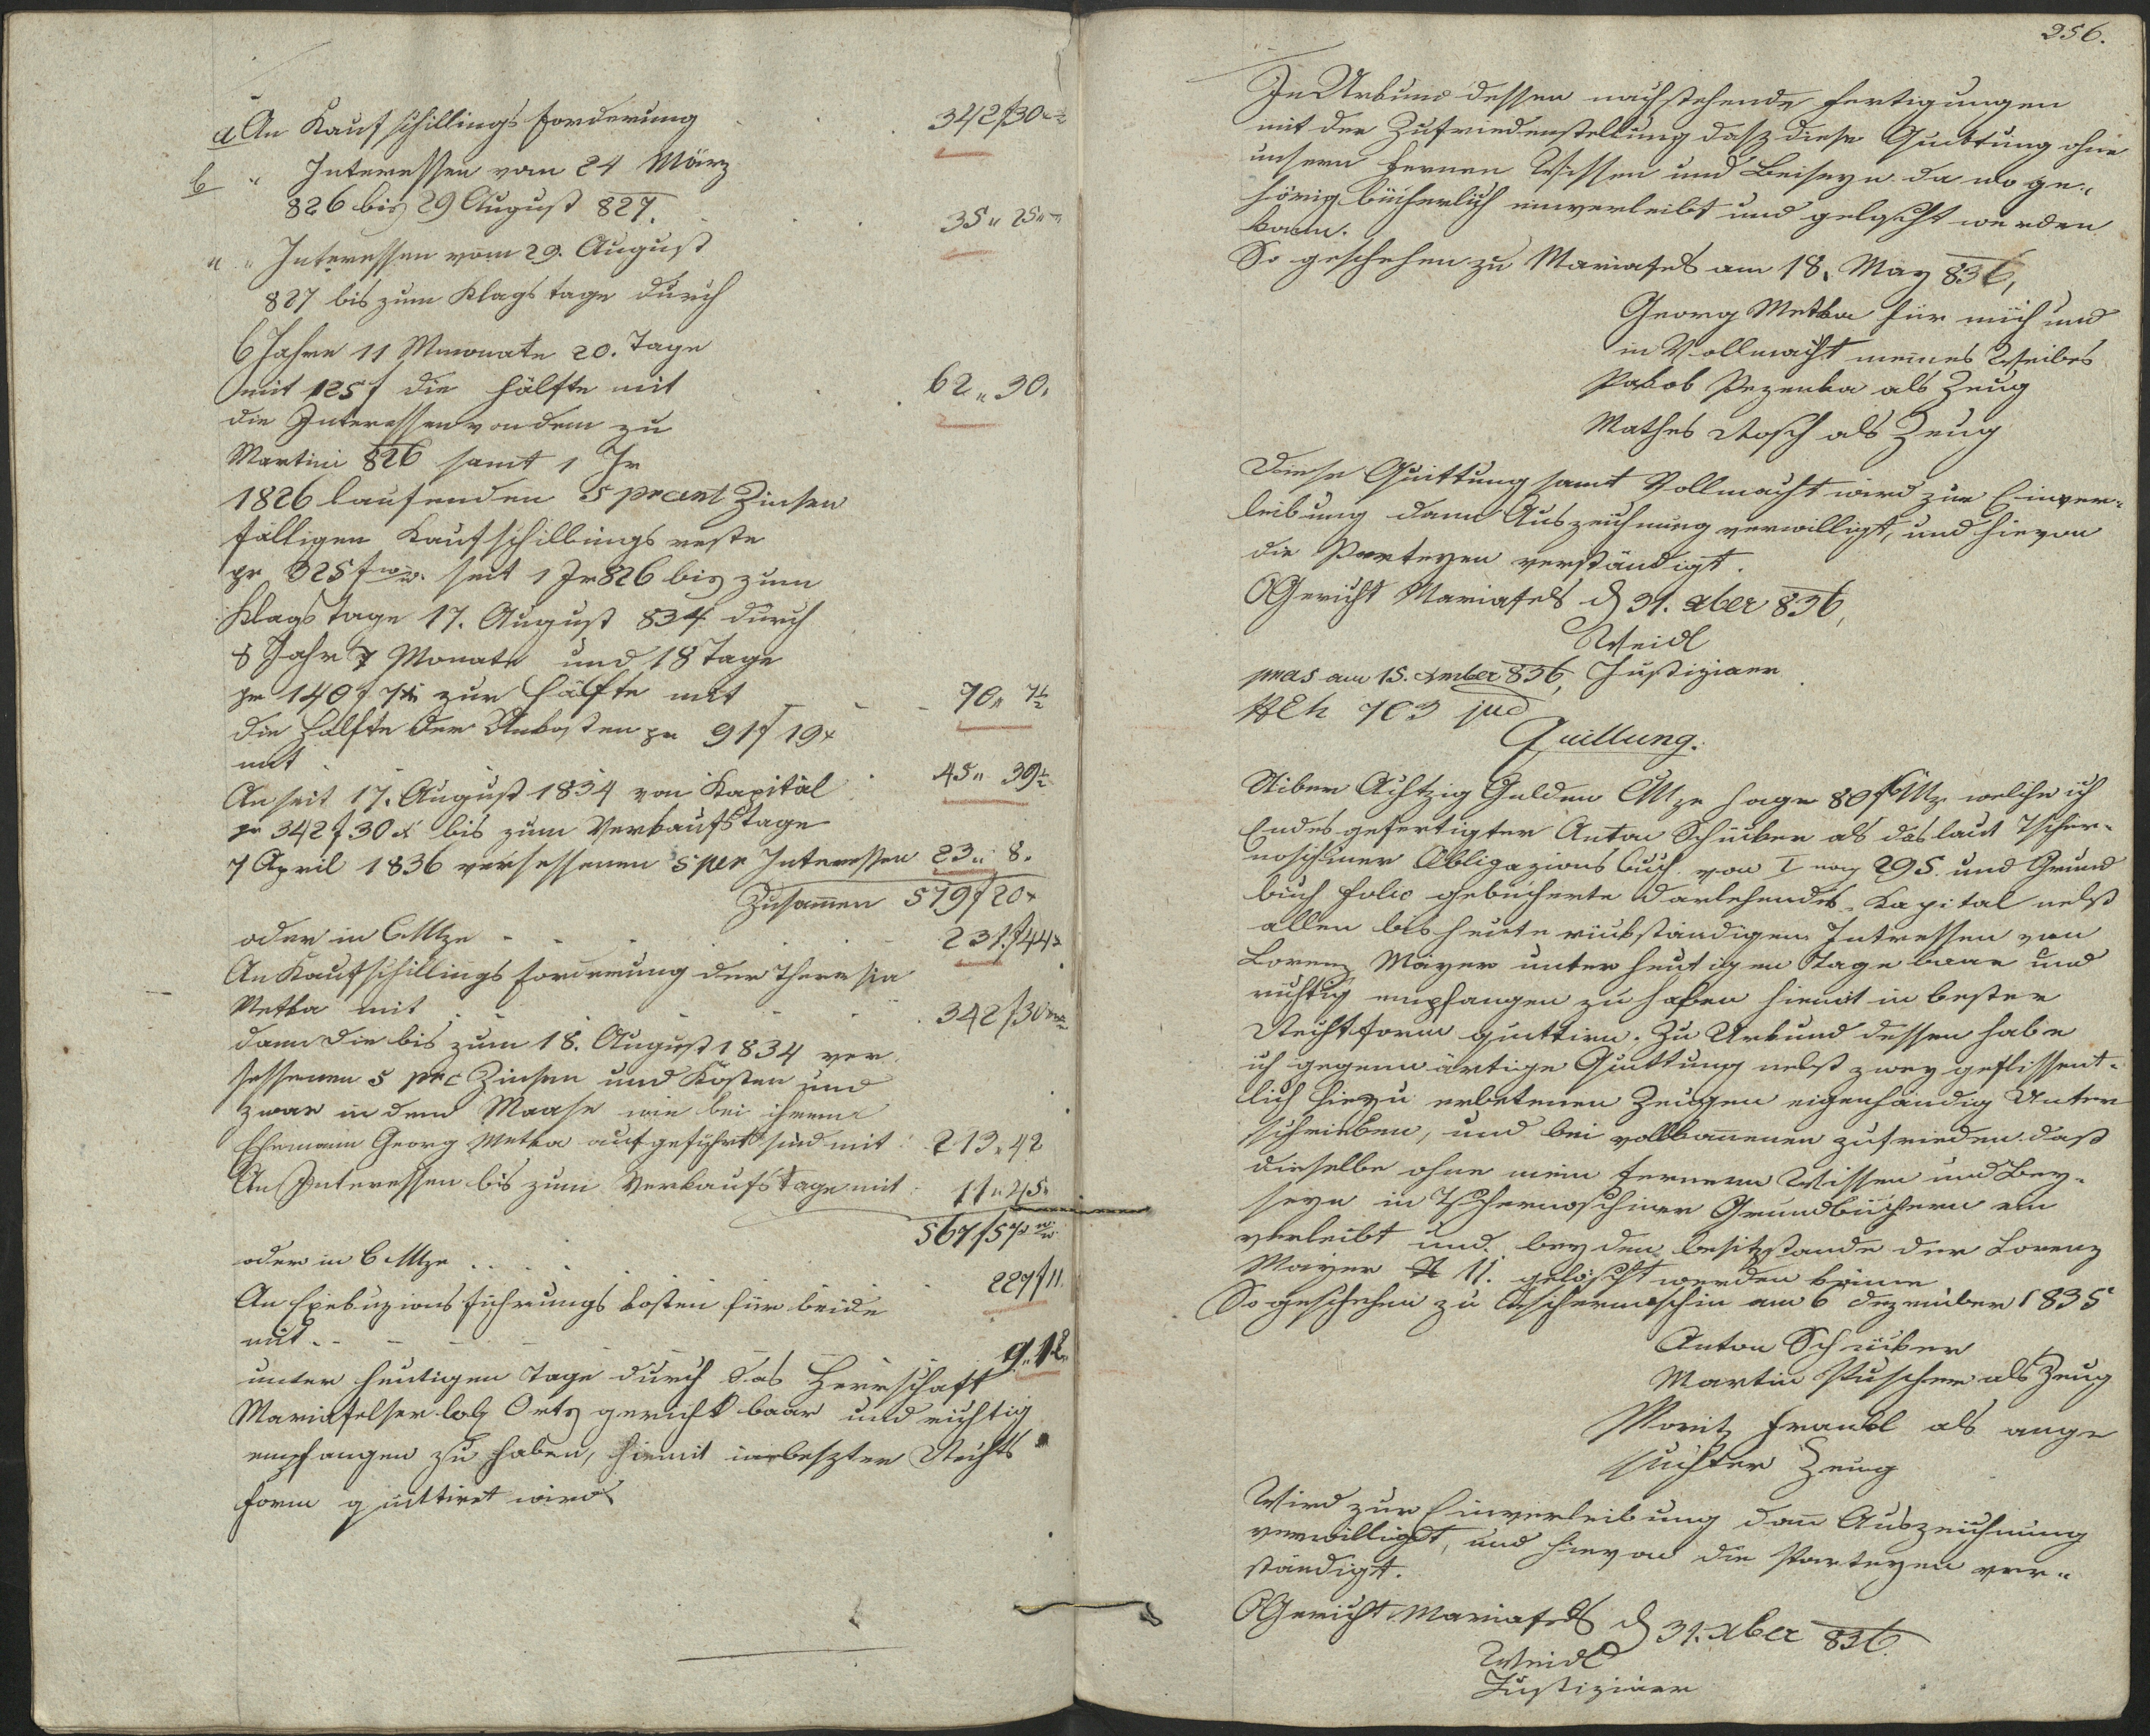 a An Kaufschillings forderung . . . 342 f 30 x
b " Interessen vom 24 März
826 bis 29 August 827. . . . 35 " 25 "
" " Interessen vom 29. August
827 bis zum Klagstage durch
6 Jahre 11 Monate 20. Tage
mit 125 f die Hälfte mit . . 62 " 30.
die Interessen von dem zu
Martini 826 samt 1 Jr
1826 laufenden 5 precent Zinsen
fälligen Kaufschillings reste
pr 325 f seit 1 Jr 826 bis zum
Klagstage 17. August 834 durch
8 Jahr 7 Monate und 18 Tage
pr 140 f zur Hälfte mit 70 " 7½
die Hälfte der Unkosten pr 91 f 19 x
mit . . . 45 " 39½
An seit 17. August 1834 von Kapital
pr 342 f 30 x bis zum Verkaufstage
7 April 1836 versessenen 5 per Interessen 23 " 8.
Zusammen 579 f 20 x
oder in CMze . . . . 231 f 44 x
An Kaufschillings forderung der Theresia
Metka mit . . . . 342 f 30
dann die bis zum 18. August 1834 ver-
sessenen 5 prc Zinsen und Kosten und
zwar in dem Maase wie bei ihrem
Ehemann Georg Metka aufgeführt sind mit 213 " 42
An Interessen bis zum Verkaufstage mit 11 " 45
567 f 57
oder in CMze . . . . 227 f 11
An Exekuzionsführungs kosten für beide
mit . . . . 9 " 12
unter heutigen Tage durch das Herrschaft
Mariafelser löb Ortsgericht baar und richtig
empfangen zu haben, hiemit in beszter Rechts
form quittiret wird
256.
In Urkund dessen nachstehende Fertigungen
mit der Zufriedenstellung dasz diese Quittung ohne
unsern fernern Wissen und Beiseyn da wo ge-
hörig bücherlich einverleibt und gelöscht werden
kann.
So geschehen zu Mariafels am 18. May 836,
Georg Metka für mich und
in Vollmacht meines Weibes
Jakob Pezenka als Zeug
Mathes Rosch als Zeug
Diese Quittung samt Vollmacht wird zur Einver-
leibung dann Auszeichnung verwilligt, und hievon
die Parteyen verständigt.
OGericht Mariafels d 31. xber 836,
Weidl
Justiziaer
pras am 15. 836,
NEh 703 jud
Quittung.
Uiber Achtzig Gulden CMze sage 80 f CMz welche ich
Endesgefertigter Anton Schücker als das laut Tscher-
noschiner Obligazions Buch von I pag 295. und Grund
buch folio gebücherte Darlehendes Kapital nebst
allen bis heute rückständigen Intressen von
Lorenz Mayer unter heutigen Tage baar und
richtig empfangen zu haben hiemit in bester
Rechtsform quittire. Zu Urkund dessen habe
ich gegenwärtige Quittung nebst zwey geflissent-
lich hiezu erbetenen Zeugen eigenhändig Unter
schrieben, und bei vollkommenen zufrieden daß
dieselbe ohne mein fernern Wissen und Bey-
seyn in Tschernoschiner Grundbüchern ein
verleibt und bey dem besitzstande der Lorenz
Mayer N 11. gelöscht werden könne
So geschehen zu Tschernoschin am 6 Dezember 1835
Anton Schücker
Martin Püscher als Zeug
Moritz Frankl als ange
suchter Zeug
Wird zur Einverleibung dann Auszeichnung
verwilligt, und hievon die Parteyen ver-
ständigt.
OGericht Mariafels d 31. xber 836.
Weidl
Justiziaer